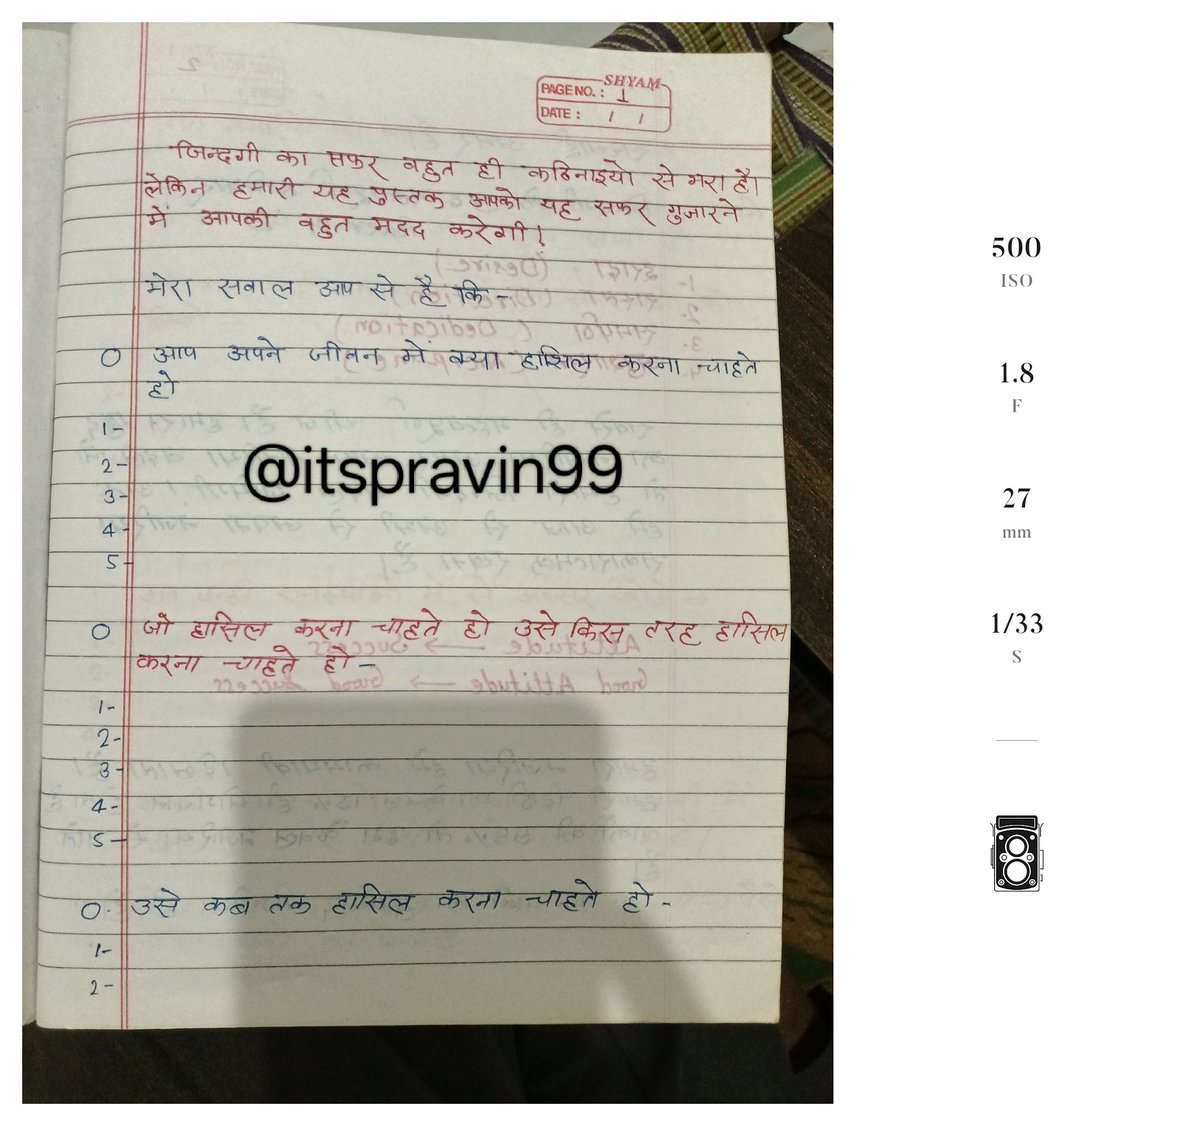 SHYAM
PAGE NO. : 1
DATE : / /
जिन्दगी का सफर बहुत ही कठिनाइयो से भरा है।
लेकिन हमारी यह पुस्तक आपको यह सफर गुजारने
में आपकी बहुत मदद करेगी!
मेरा सवाल आप से है कि-
0 आप अपने जीवन में क्या हासिल करना चाहते
हो
1-
@itspravin99
2-
3-
4-
5-
0 जो हासिल करना चाहते हो उसे किस तरह हासिल
करना चाहते हो-
1-
2-
3-
4-
5-
0. उसे कब तक हासिल करना चाहते हो-
1-
2-
500
ISO
1.8
F
27
mm
1/33
S